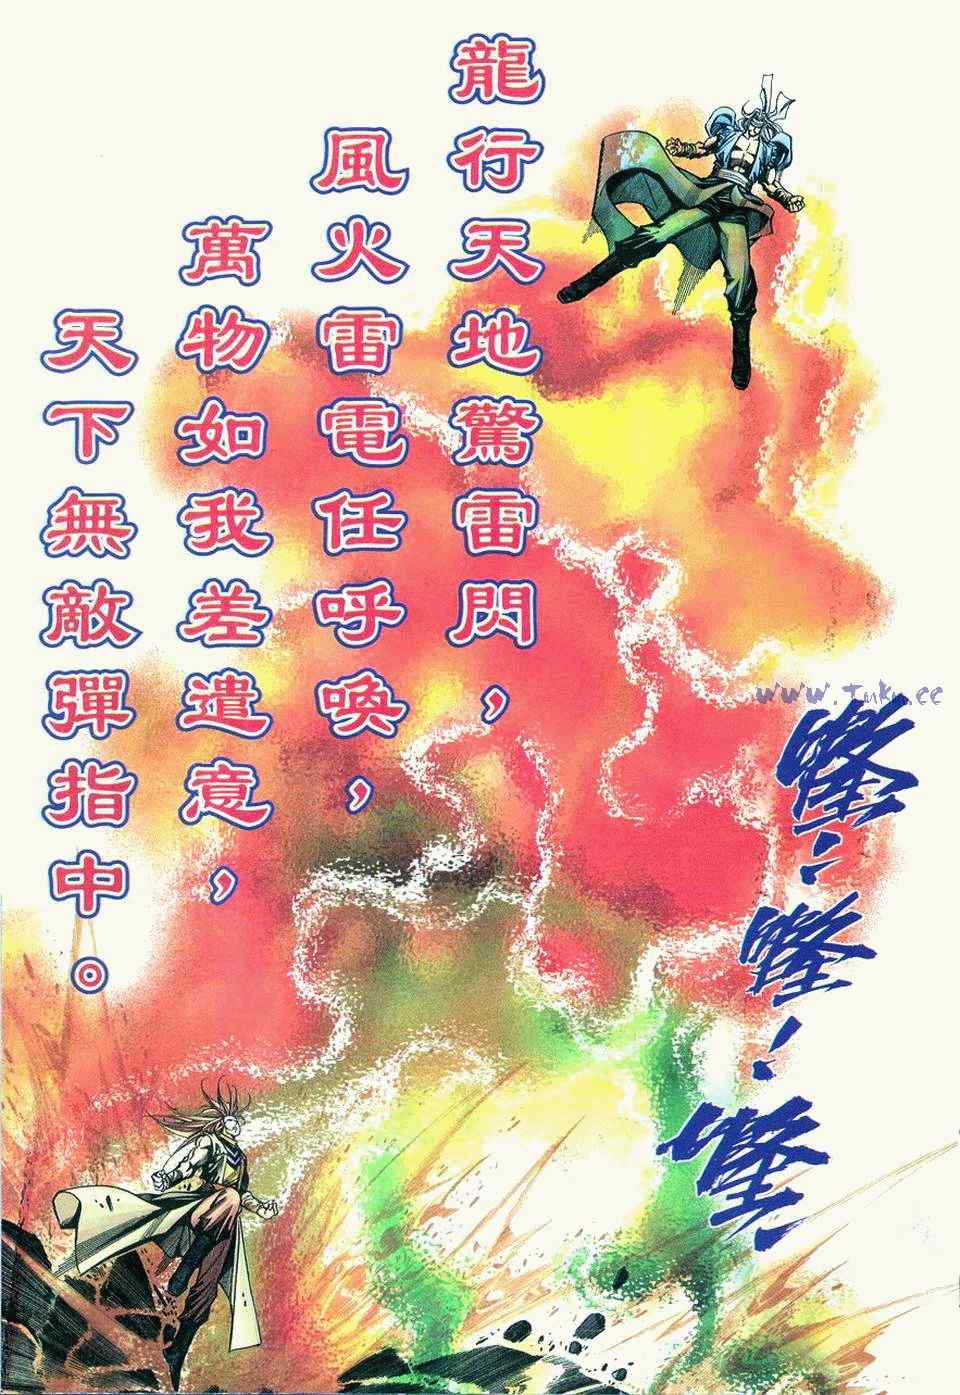 龍行天地驚雷閃，
風火雷電任呼喚，
萬物如我差遣意，
天下無敵彈指中。
www.Tuku.cc